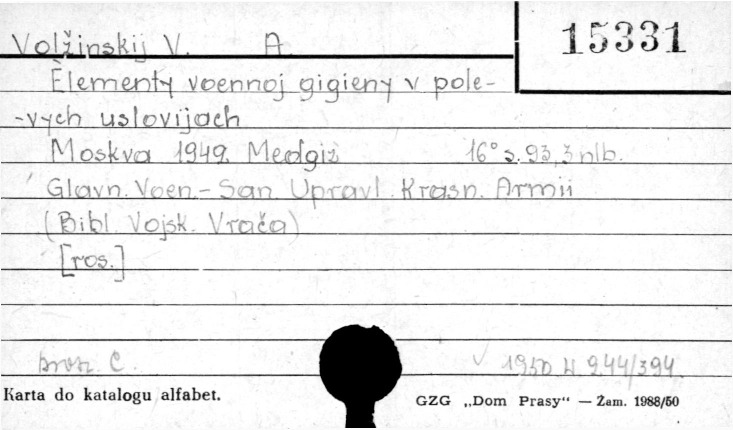 15331
Volžinskij V. A.
Èlementy voennoj gigieny v pole-
-vych uslovijach
Moskva 1942 Medgiz 16° s. 93, 3 nlb.
Glavn. Voen.- San. Upravl. Krasn. Armii
(Bibl. Vojsk. Vrača)
[ros.]
C. 1950 244/394.
Karta do katalogu alfabet.
GZG „Dom Prasy“ — Zam. 1988/50